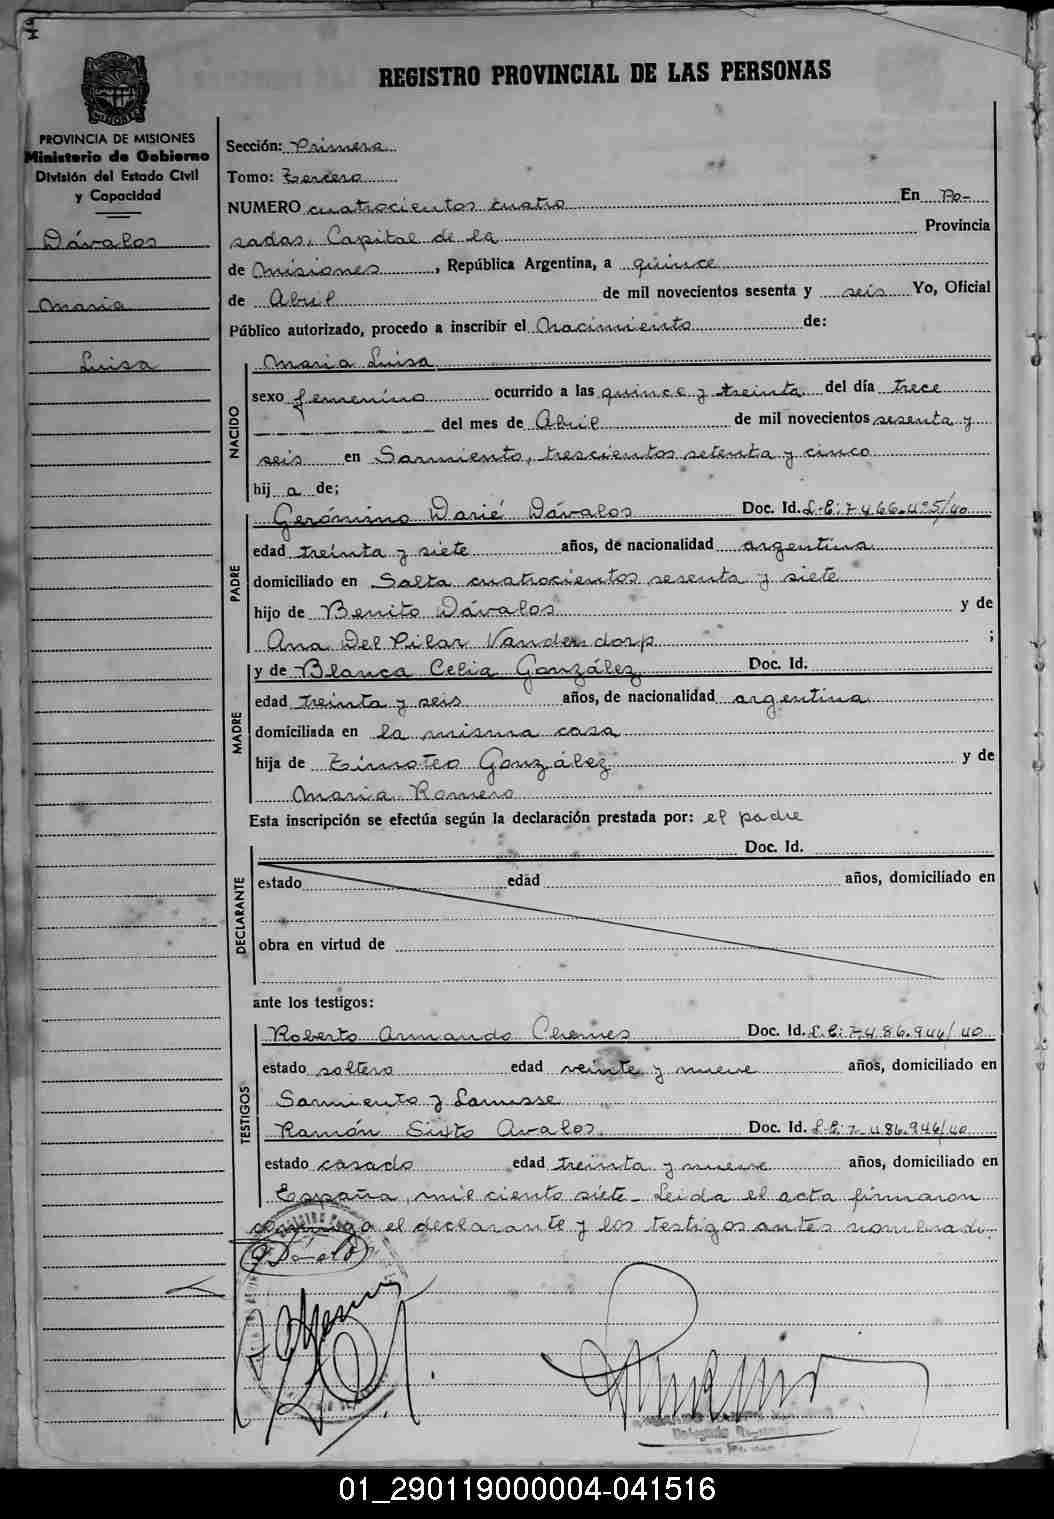 REGISTRO PROVINCIAL DE LAS PERSONAS
PROVINCIA DE MISIONES
Ministerio de Gobierno
División del Estado Civil
y Capacidad
Dávalos
Maria
Luisa
Sección: Primera
Tomo: Tercero
NUMERO cuatrocientos cuatro En Po-
sadas, Capital de la Provincia
de Misiones, República Argentina, a quince
de Abril de mil novecientos sesenta y seis Yo, Oficial
Público autorizado, procedo a inscribir el Nacimiento de:
NACIDO
Maria Luisa
sexo femenino ocurrido a las quince y treinta del día trece
del mes de Abril de mil novecientos sesenta y
seis en Sarmiento, trescientos setenta y cinco
hij a de;
PADRE
Gerónimo Darié Dávalos Doc. Id. L-E: 7.466.495/40
edad treinta y siete años, de nacionalidad argentina
domiciliado en Salta cuatrocientos sesenta y siete
hijo de Benito Dávalos y de
Ana Del Pilar Vanderdorp ;
MADRE
y de Blanca Celia González Doc. Id.
edad treinta y seis años, de nacionalidad argentina
domiciliada en la misma casa
hija de Timoteo González y de
Maria Romero
Esta inscripción se efectúa según la declaración prestada por: el padre
DECLARANTE
Doc. Id.
estado edad años, domiciliado en
obra en virtud de
ante los testigos:
TESTIGOS
Roberto Armando Chemes Doc. Id. L.E: 7.486.944/40
estado soltero edad veinte y nueve años, domiciliado en
Sarmiento y Lanusse
Ramón Sixto Avalos Doc. Id. L.E: 7.486.946/40
estado casado edad treinta y nueve años, domiciliado en
España, mil ciento siete- Leida el acta firmaron
conmigo el declarante y los testigos antes nombrado.
Delegado Regional
01_290119000004-041516